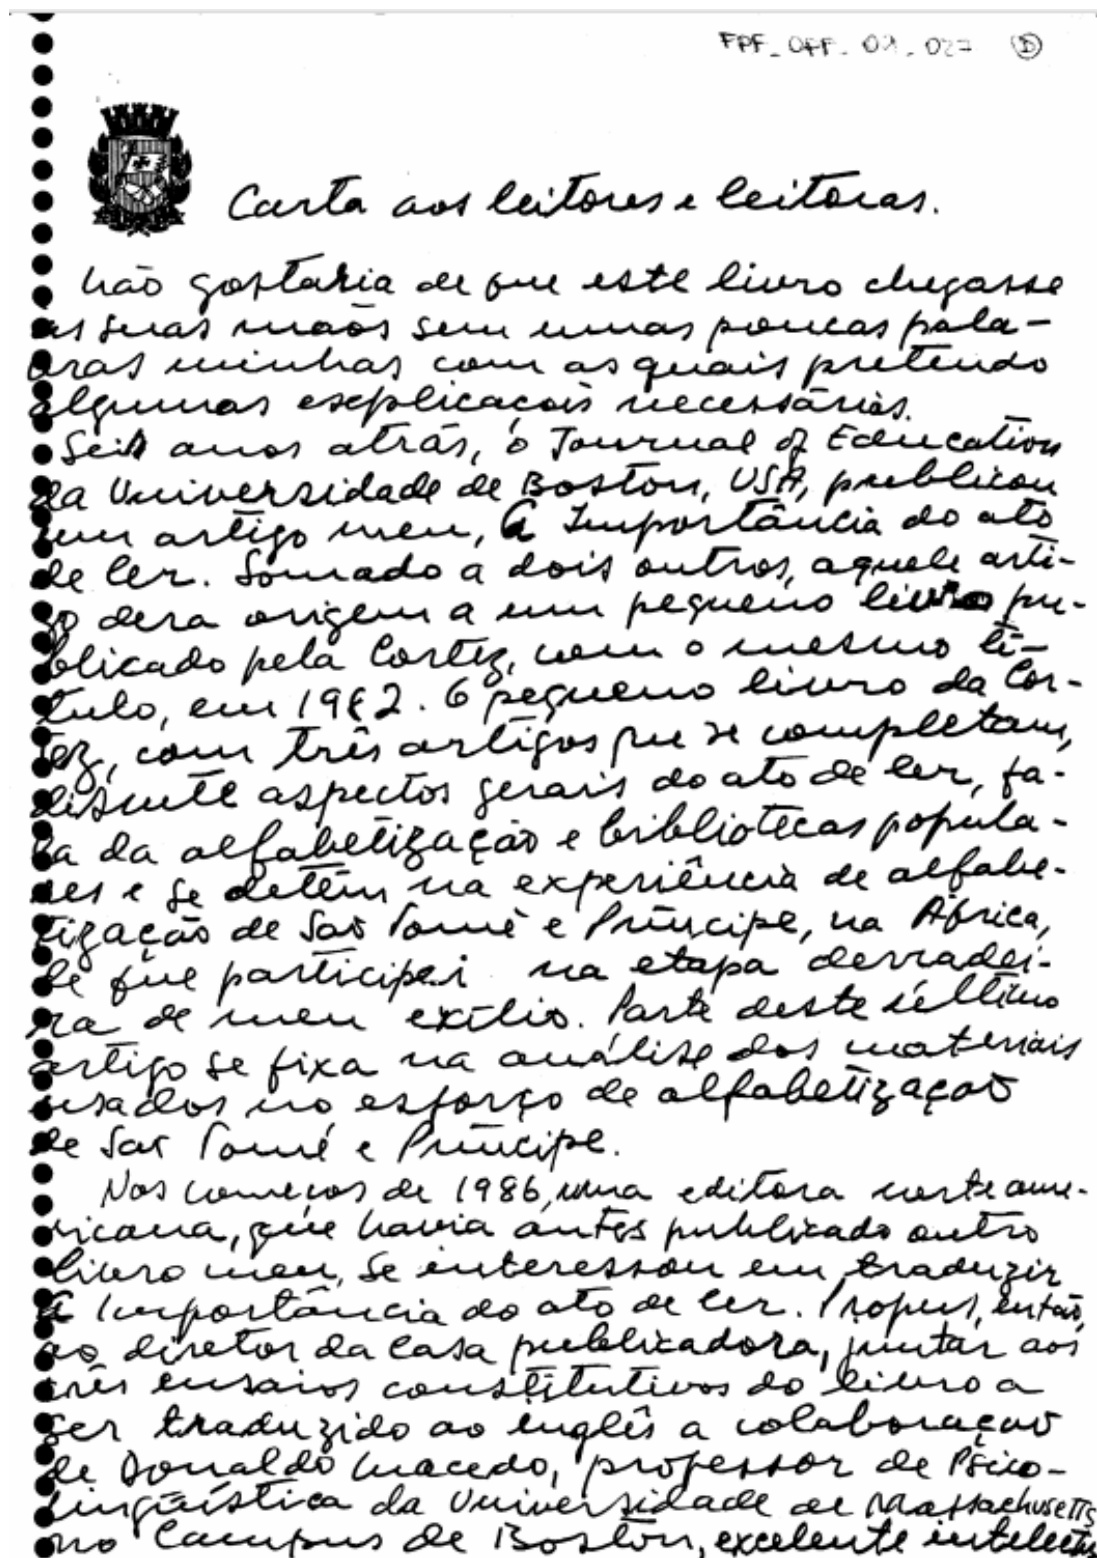 FPF_OPF_01_027 D
Carta aos leitores e leitoras.
Não gostaria de que este livro chegasse
às suas mãos sem umas poucas pala-
vras minhas com as quais pretendo
algumas explicações necessárias.
Seis anos atrás, o Journal of Education
da Universidade de Boston, USA, publicou
um artigo meu, A Importância do ato
de ler. Somado a dois outros, aquele arti-
go dera origem a um pequeno livro pu-
blicado pela Cortez, com o mesmo tí-
tulo, em 1982. O pequeno livro da Cor-
tez, com três artigos que se completam,
discute aspectos gerais do ato de ler, fa-
la da alfabetização e bibliotecas popula-
res e se detêm na experiência de alfabe-
tização de São Tomé e Príncipe, na África,
de que participei na etapa derradei-
ra de meu exílio. Parte deste último
artigo se fixa na análise dos materiais
usados no esforço de alfabetização
de São Tomé e Príncipe.
Nos começos de 1986, uma editora norteame-
ricana, que havia antes publicado outro
livro meu, se interessou em traduzir
A Importância do ato de ler. Propus, então,
ao diretor da casa publicadora, juntar aos
três ensaios constitutivos do livro a
ser traduzido ao inglês a colaboração
de Donaldo Macedo, professor de Psico-
lingüística da Universidade de Massachusetts
no Campus de Boston, excelente intelectu